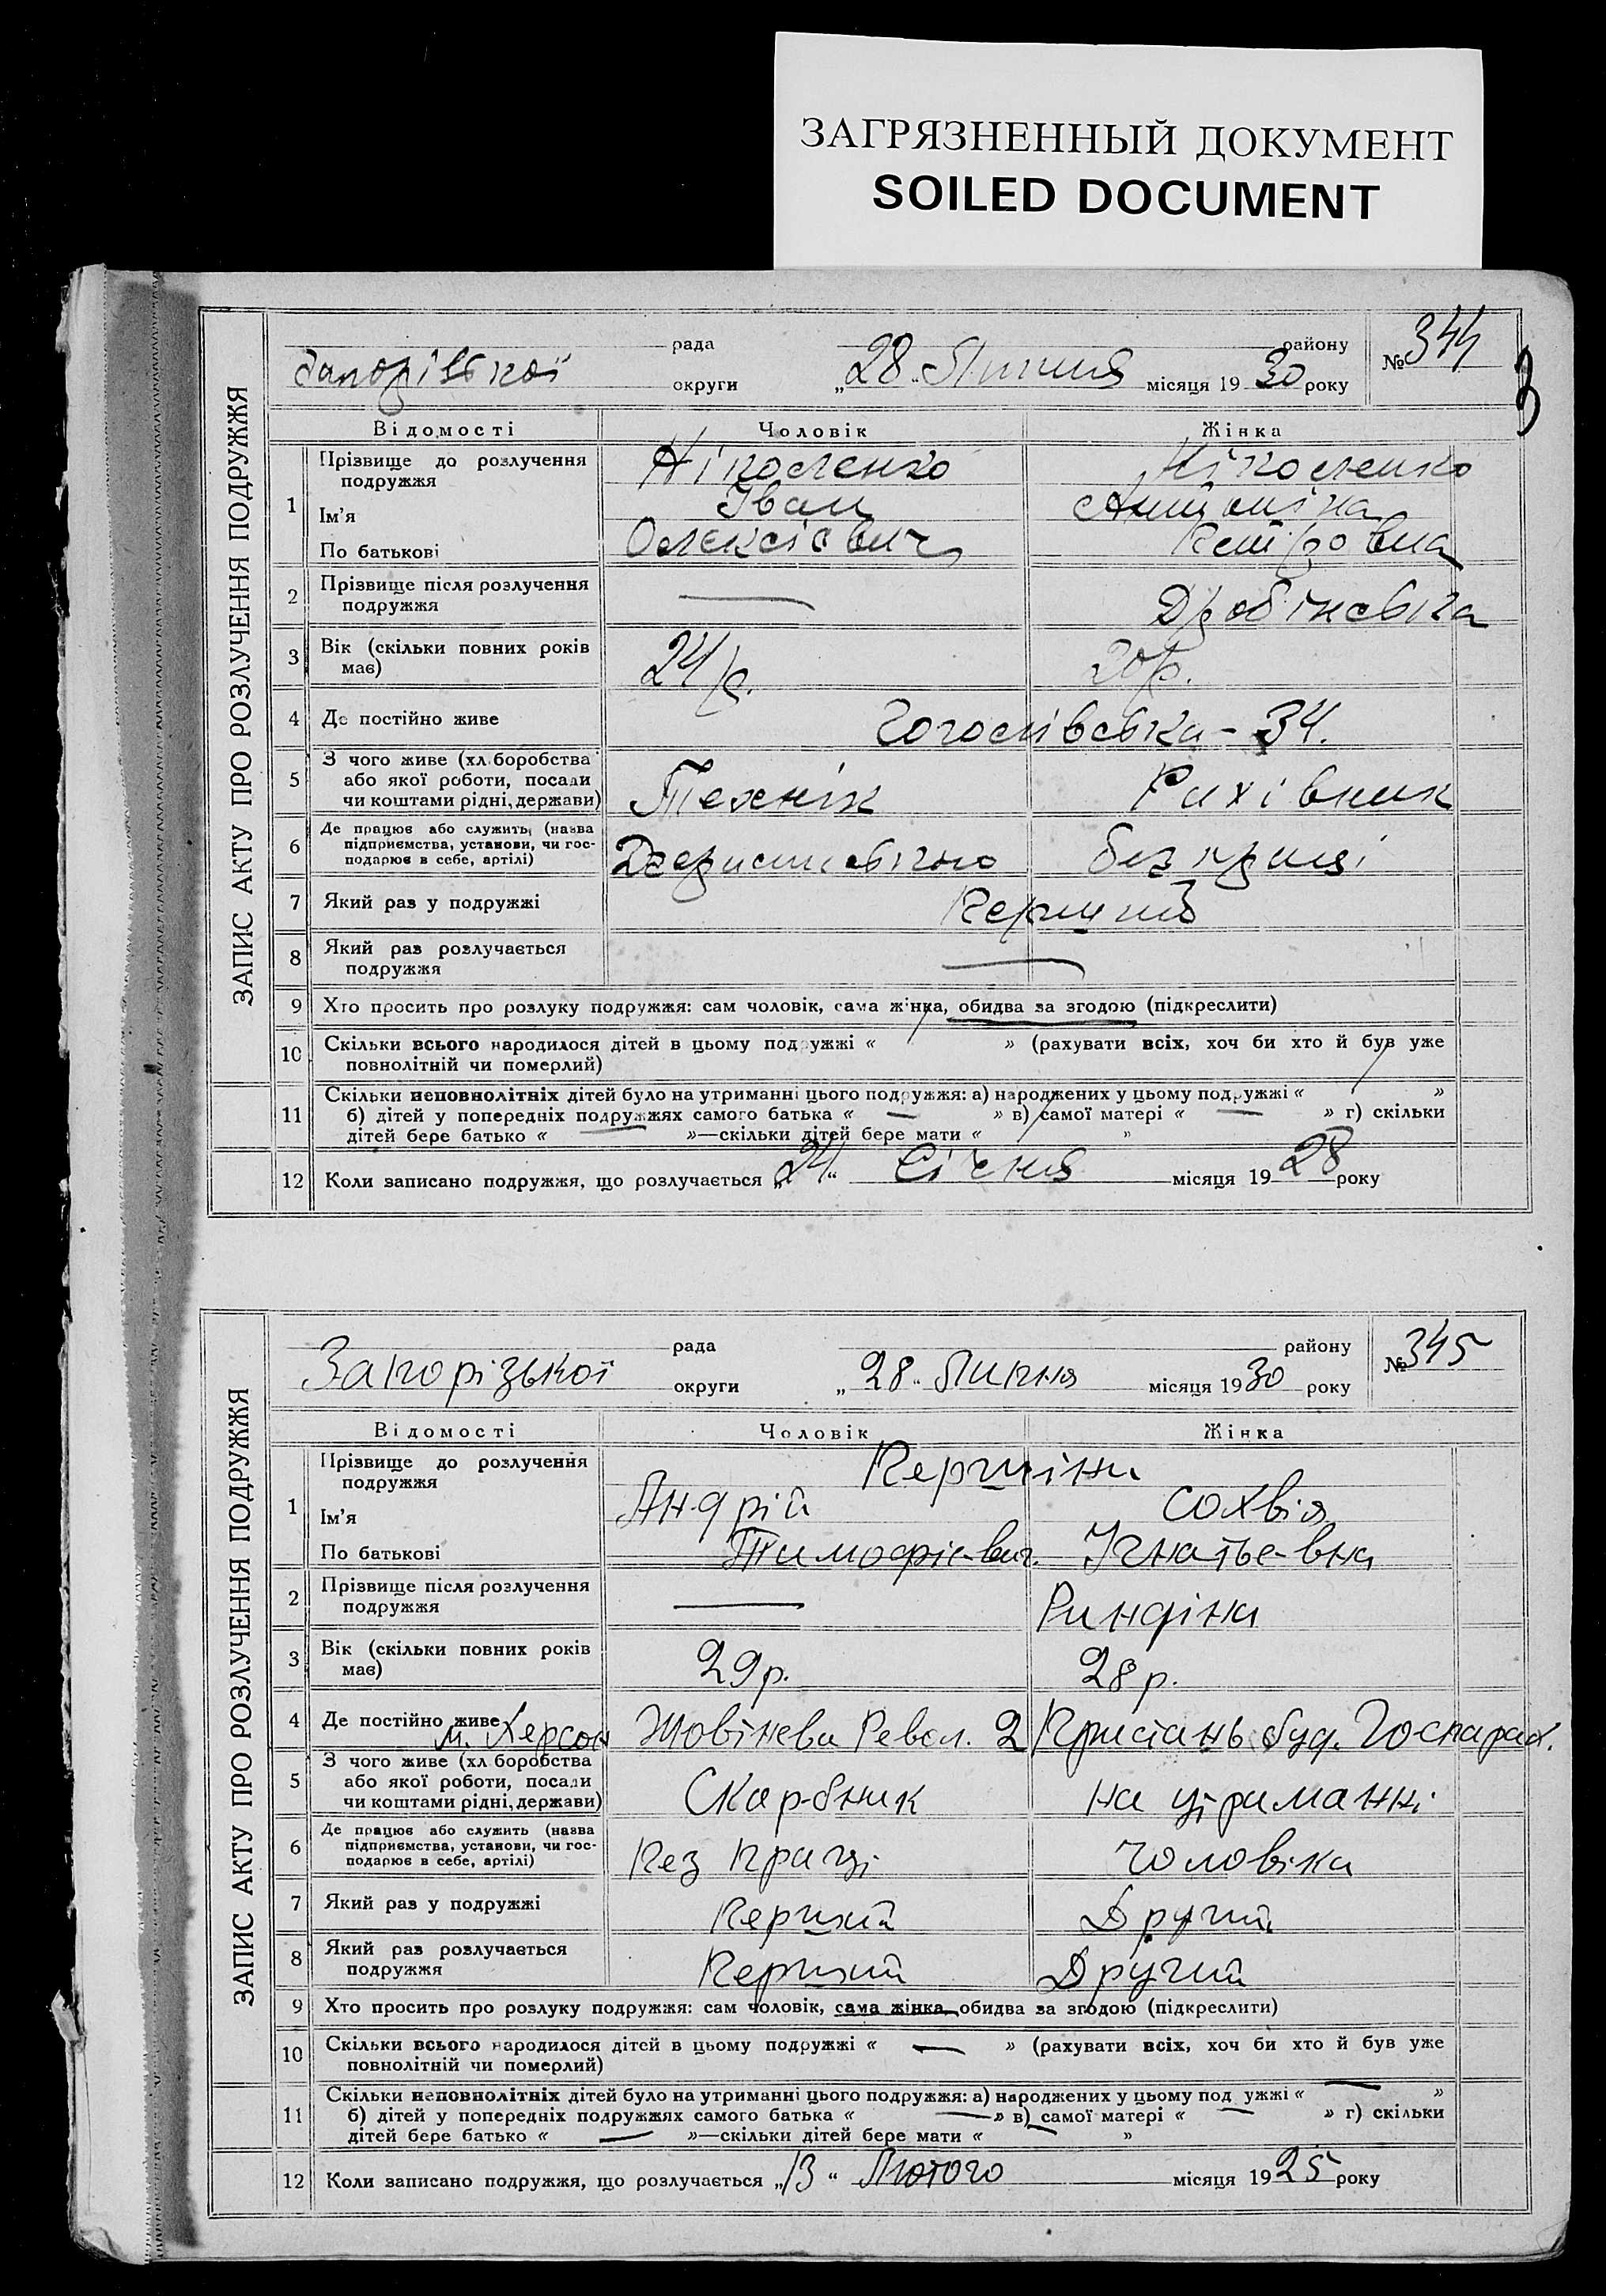 ЗАГРЯЗНЕННЫЙ ДОКУМЕНТ
SOILED DOCUMENT
3
ЗАПИС АКТУ ПРО РОЗЛУЧЕННЯ ПОДРУЖЖЯ
рада району № 344
Запорізької округи „28" Липня місяця 1930 року
Відомості Чоловік Жінка
1 Прізвище до розлучення подружжя Ніколенко Ніколенко
Ім'я Іван Антоніна
По батькові Олексієвич Петровна
2 Прізвище після розлучення
подружжя —
3 Вік (скільки повних років 24 р. 20 р.
має)
4 Де постійно живе Гоголівська - 34.
5 З чого живе (хл.боробства
або якої роботи, посади Технік Рахівник
чи коштами рідні, держави)
6 Де працює або служить (назва
підприємства, установи, чи гос- без праці
подарює в себе, артілі)
7 Який раз у подружжі Перший
8 Який раз розлучається
подружжя —
9 Хто просить про розлуку подружжя: сам чоловік, сама жінка, обидва за згодою (підкреслити)
10 Скільки всього народилося дітей в цьому подружжі « » (рахувати всіх, хоч би хто й був уже
повнолітній чи померлий)
11 Скільки неповнолітніх дітей було на утриманні цього подружжя: а) народжених у цьому подружжі « »
б) дітей у попередніх подружжях самого батька « — » в) самої матері « — » г) скільки
дітей бере батько « — »—скільки дітей бере мати « »
12 Коли записано подружжя, що розлучається „24" Січня місяця 1928 року
ЗАПИС АКТУ ПРО РОЗЛУЧЕННЯ ПОДРУЖЖЯ
рада району № 345
Запорізької округи „28" Липня місяця 1930 року
Відомості Чоловік Жінка
1 Прізвище до розлучення Першіни
подружжя
Ім'я Андрій Сохвія
По батькові Тимофієвич. Ігнатьевна
2 Прізвище після розлучення
подружжя — Риндіна
3 Вік (скільки повних років 29 р. 28 р.
має)
4 Де постійно живе м. Херсон Жовтнева Револ. 2 Пристань буд.
5 З чого живе (хл.боробства
або якої роботи, посади Скарбник на утриманні
чи коштами рідні, держави)
6 Де працює або служить (назва
підприємства, установи, чи гос- Без праці Чоловіка
подарює в себе, артілі)
7 Який раз у подружжі Перший Другий
8 Який раз розлучається
подружжя Перший Другий
9 Хто просить про розлуку подружжя: сам чоловік, сама жінка, обидва за згодою (підкреслити)
10 Скільки всього народилося дітей в цьому подружжі « — » (рахувати всіх, хоч би хто й був уже
повнолітній чи померлий)
11 Скільки неповнолітніх дітей було на утриманні цього подружжя: а) народжених у цьому подружжі « — »
б) дітей у попередніх подружжях самого батька « — » в) самої матері « — » г) скільки
дітей бере батько « — »—скільки дітей бере мати « — »
12 Коли записано подружжя, що розлучається „13" Лютого місяця 1925 року